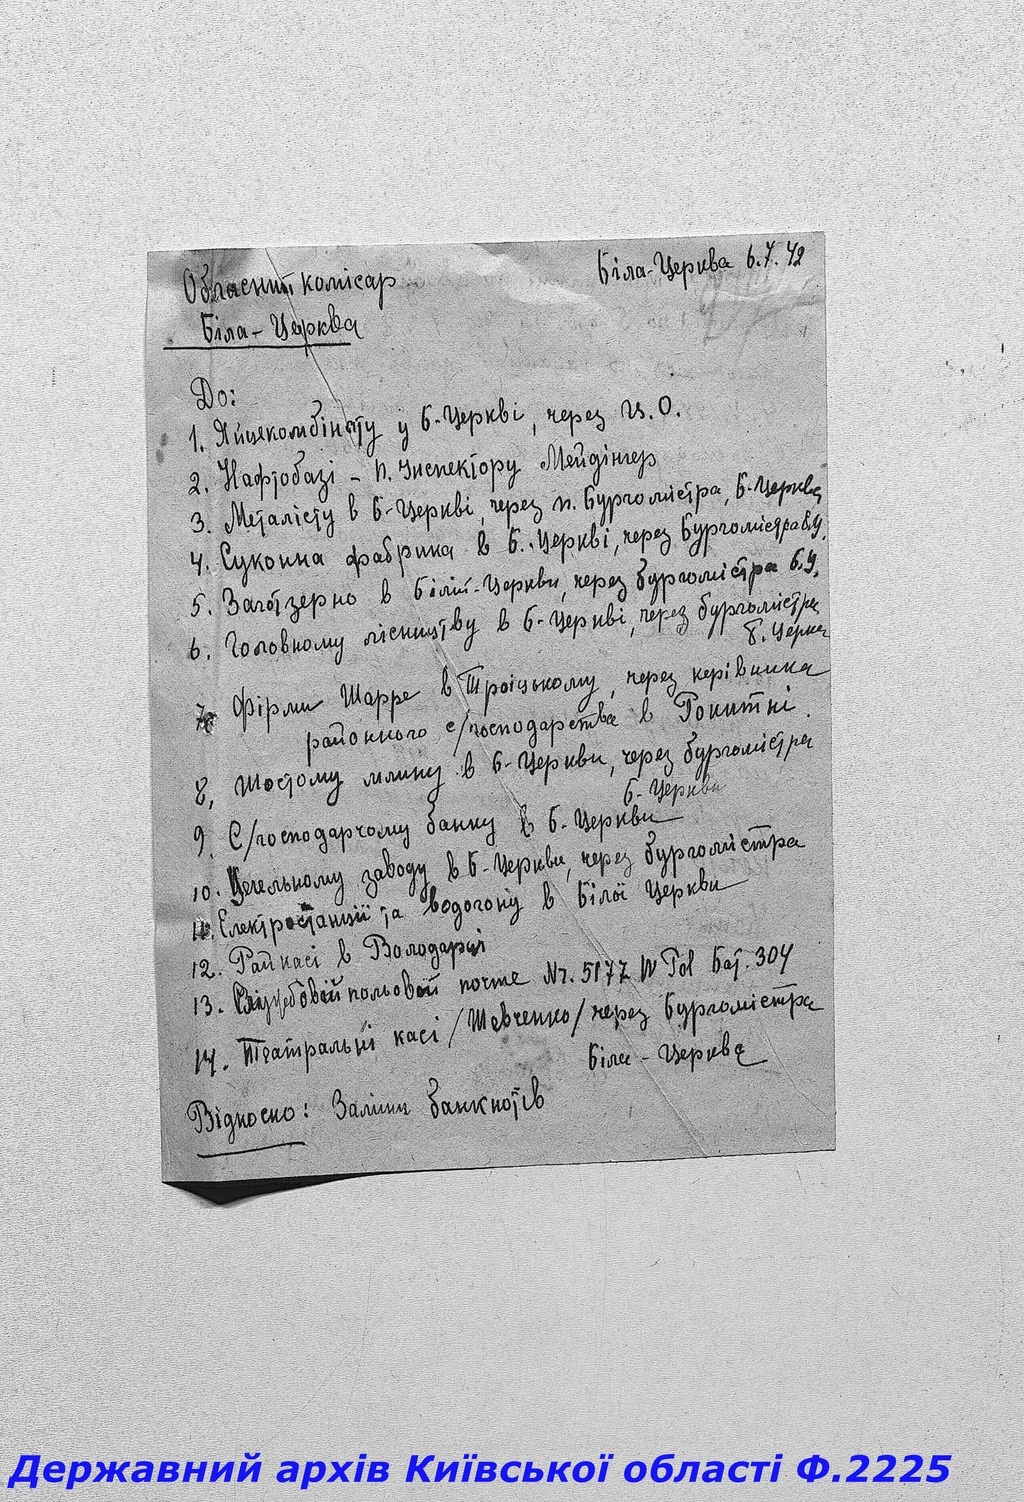 Обласний комісар
Біла-Церква 6.7.42
Біла-Церква
До:
1. Яйцекомбінату у Б-Церкві, через Ц.О.
2. Нафтобазі - п. Інспектору Мейдінгер
3. Металісту в Б-Церкві, через п. Бургомістра, Б-Церква
4. Суконна фабрика в Б.-Церкві, через Бургомістра Б.Ц.
5. Заготзерно в Білій-Церкви, через бургомістра Б.Ц.
6. Головному лісництву в Б-Церкві, через бургомістра
Б. Церква
7. Фірми Шарре в Троїцькому, через керівника
районного с/господарства в Рокитні.
8. Шостому млину в Б-Церкви, через бургомістра
Б-Церкви
9. С/господарчому банку в Б-Церкви
10. Цегельному заводу в Б-Церкви, через бургомістра
11. Електростанції та водогону в Білої Церкви
12. Райкасі в Володарці
13. Службовій польовой почте Nr. 5177 W Pol Бат. 304
14. Театральні касі /Шевченко/ через Бургомістра
Біла-Церква
Відносно: Заміни банкнотів
Державний архів Київської області Ф.2225